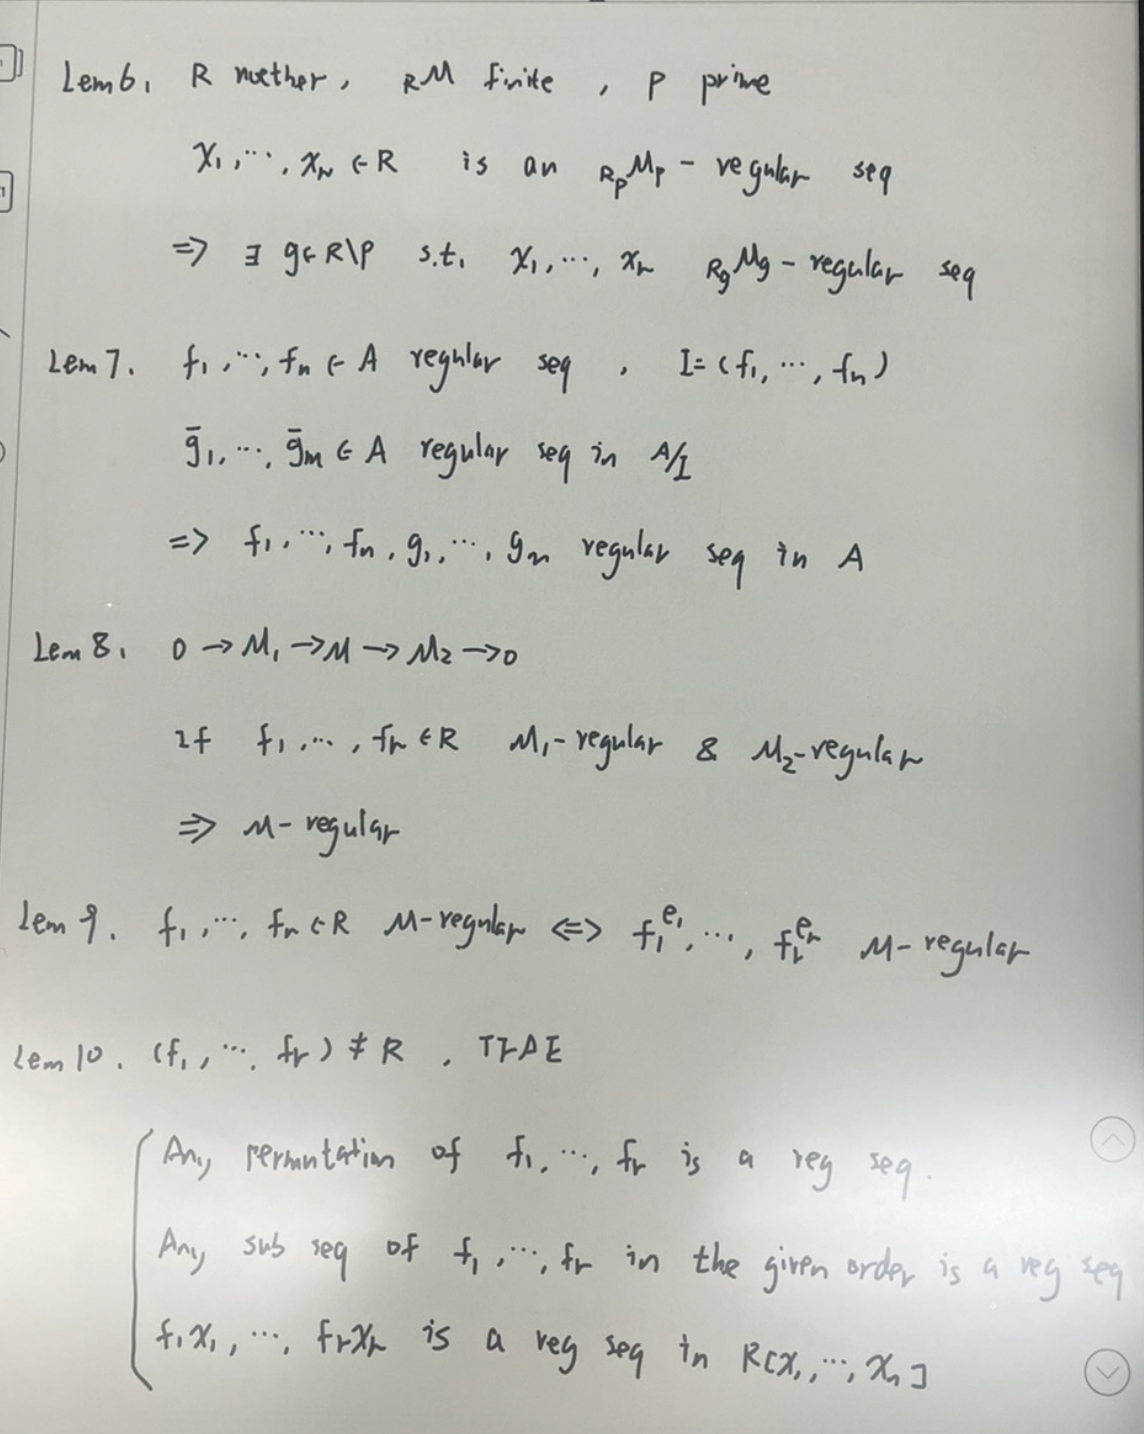 Lem 6. R noether, _R M finite, P prime
x₁, ⋯, xᵣ ∈ R is an _{R_P}M_P - regular seq
⇒ ∃ g∈R\P s.t. x₁, ⋯, xᵣ _{R_g}M_g - regular seq
Lem 7. f₁, ⋯, fₙ ∈ A regular seq, I=(f₁, ⋯, fₙ)
ḡ₁, ⋯, ḡₘ ∈ A regular seq in A/I
⇒ f₁, ⋯, fₙ, g₁, ⋯, gₘ regular seq in A
Lem 8. 0 → M₁ → M → M₂ → 0
If f₁, ⋯, fᵣ ∈ R M₁-regular & M₂-regular
⇒ M-regular
Lem 9. f₁, ⋯, fᵣ ∈ R M-regular ⇔ f₁^{e₁}, ⋯, fᵣ^{eᵣ} M-regular
Lem 10. (f₁, ⋯, fᵣ) ≠ R, TFAE
Any permutation of f₁, ⋯, fᵣ is a reg seq.
Any sub seq of f₁, ⋯, fᵣ in the given order is a reg seq
f₁x₁, ⋯, fᵣxᵣ is a reg seq in R[x₁, ⋯, xᵣ]